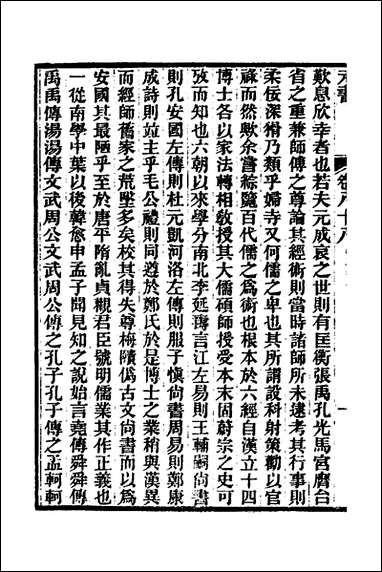 元書 卷八十八 一
歎息欣幸者也若夫元成哀之世則有匡衡張禹孔光馬宮膺台
省之重兼師傅之尊論其經術則當時諸師所未逮考其行事則
柔佞深猾乃類乎婦寺又何儒之卑也其所謂設科射策勸以官
祿而然歟余嘗綜覽百代儒之為術也根本於六經自漢立十四
博士各以家法轉相教授其大儒碩師授受本末固蔚宗之史可
攷而知也六朝以來學分南北李延壽言江左易則王輔嗣尚書
則孔安國左傳則杜元凱河洛左傳則服子慎尚書周易則鄭康
成詩則竝主乎毛公禮則同遵於鄭氏於是博士之業稍與漢異
而經師儒家之荒墜多矣校其得失尊梅賾僞古文尚書而以為
安國其最陋乎至於唐平隋亂貞觀君臣號明儒業其作正義也
一從南學中葉以後韓愈申孟子聞見知之說始言堯傳舜舜傳
禹禹傳湯湯傳文武周公文武周公傳之孔子孔子傳之孟軻軻